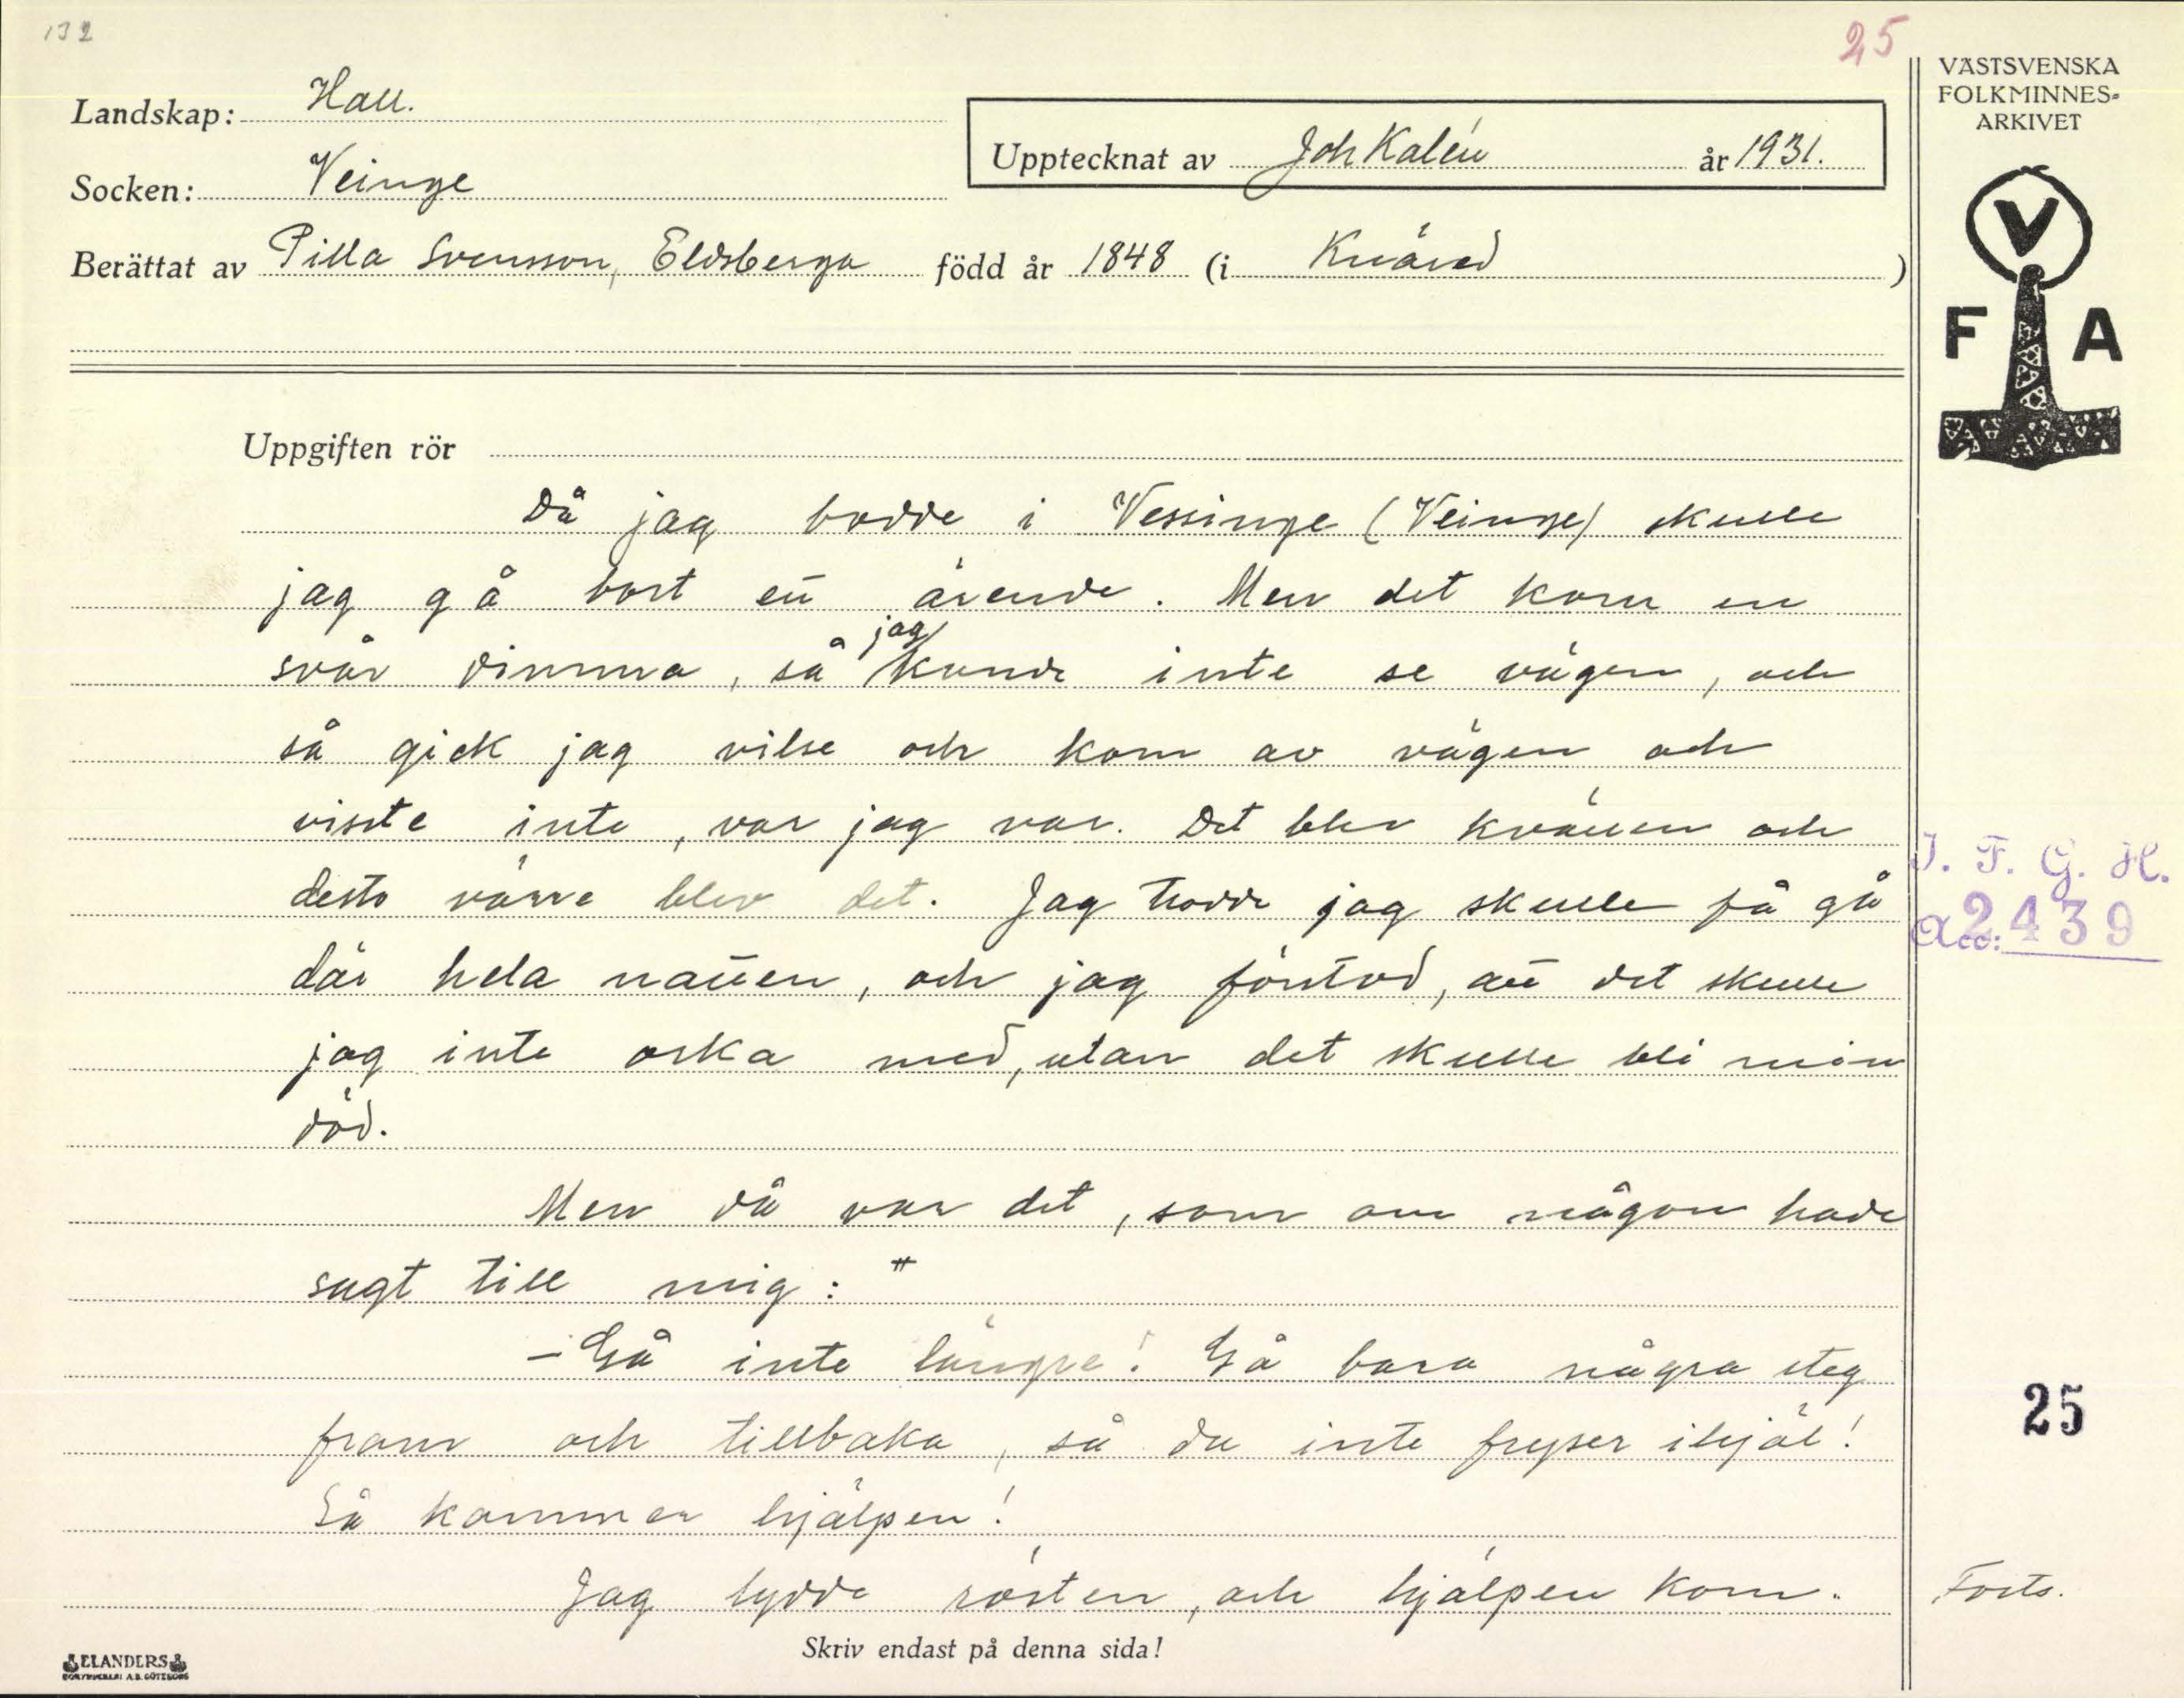 132
25
VÄSTSVENSKA
FOLKMINNES-
ARKIVET
Landskap: Hall.
Upptecknat av Joh Kalén år 1931.
Socken: Veinge
Berättat av Pilla Svensson, Eldsberga född år 1848 (i Knäred)
V
F A
Uppgiften rör
Då jag bodde i Vessinge (Veinge) skulle
jag gå bort ett ärende. Men det kom en
svår dimma, så jag kunde inte se vägen, och
så gick jag vilse och kom av vägen och
visste inte, var jag var. Det blev kvällen och
desto värre blev det. Jag trodde jag skulle få gå
där hela natten, och jag förstod, att det skulle
jag inte orka med, utan det skulle bli min
död.
Men då var det, som om någon hade
sagt till mig: "
- Gå inte längre! Gå bara några steg
fram och tillbaka, så du inte fryser ihjäl!
Så kommer hjälpen!
Jag lydde rösten, och hjälpen kom.
I. F. G. H.
Acc: 2439
25
Forts.
Skriv endast på denna sida!
ELANDERS
BOKTRYCKERI A.B. GÖTEBORG